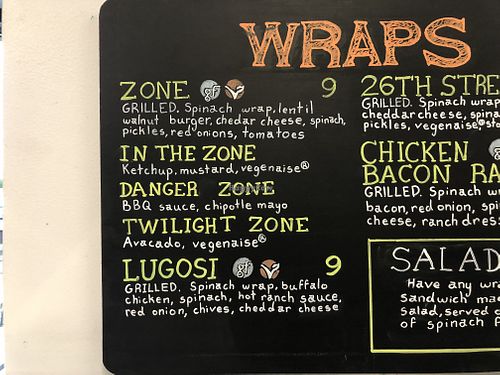 WRAPS
ZONE gf V 9
GRILLED. Spinach wrap, lentil
walnut burger, chedar cheese, spinach,
pickles, red onions, tomatoes
IN THE ZONE
Ketchup, mustard, vegenaise®
DANGER ZONE
BBQ sauce, chipotle mayo
TWILIGHT ZONE
Avacado, vegenaise®
LUGOSI gf V 9
GRILLED. Spinach wrap, buffalo
chicken, spinach, hot ranch sauce,
red onion, chives, cheddar cheese
26TH STRE
GRILLED. Spinach wrap
cheddar cheese, spina
pickles, vegenaise®, sto
CHICKEN
BACON RA
GRILLED. Spinach w
bacon, red onion, spi
cheese, ranch dress
SALAD
Have any wra
sandwich mad
salad, served o
of spinach f